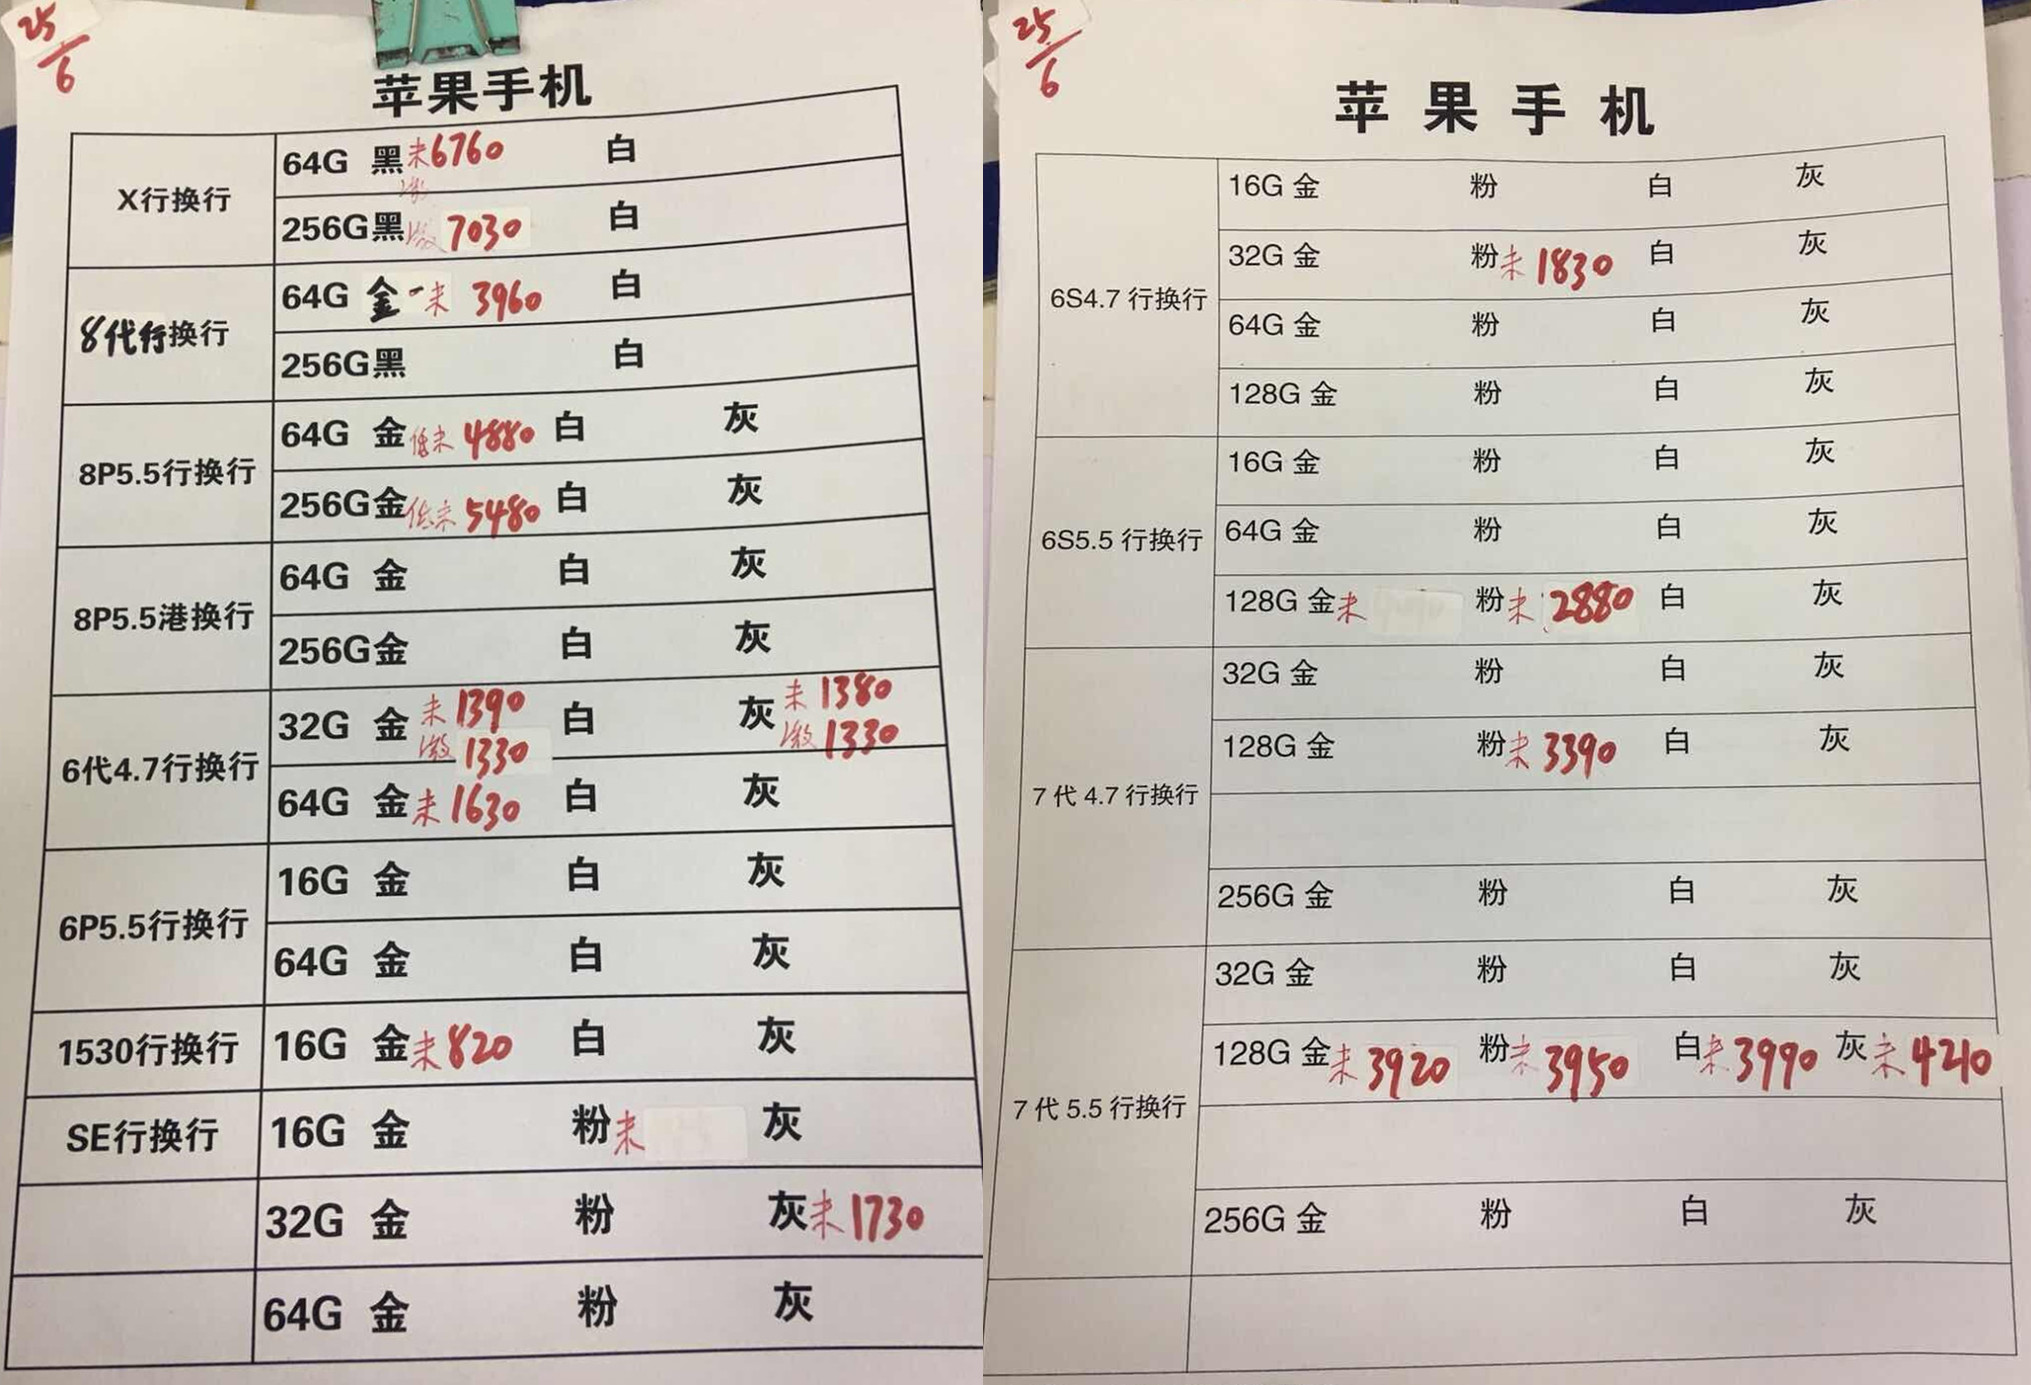 25/6
苹果手机
X行换行
64G 黑 未6760 白
激
256G黑 激 7030 白
8代行换行
64G 金-未 3960 白
256G黑 白
8P5.5行换行
64G 金 低未 4880 白 灰
256G金 低未 5480 白 灰
8P5.5港换行
64G 金 白 灰
256G金 白 灰
6代4.7行换行
32G 金 未1390 白 灰 未1380
激1330 激1330
64G 金 未1630 白 灰
6P5.5行换行
16G 金 白 灰
64G 金 白 灰
1530行换行
16G 金 未820 白 灰
SE行换行
16G 金 粉 未 灰
32G 金 粉 灰 未1730
64G 金 粉 灰
25/6
苹果手机
6S4.7行换行
16G 金 粉 白 灰
32G 金 粉 未1830 白 灰
64G 金 粉 白 灰
128G 金 粉 白 灰
6S5.5行换行
16G 金 粉 白 灰
64G 金 粉 白 灰
128G 金 未 粉 未 2880 白 灰
7代4.7行换行
32G 金 粉 白 灰
128G 金 粉 未3390 白 灰
256G 金 粉 白 灰
7代5.5行换行
32G 金 粉 白 灰
128G 金 未3920 粉 未3950 白 未3990 灰 未4210
256G 金 粉 白 灰